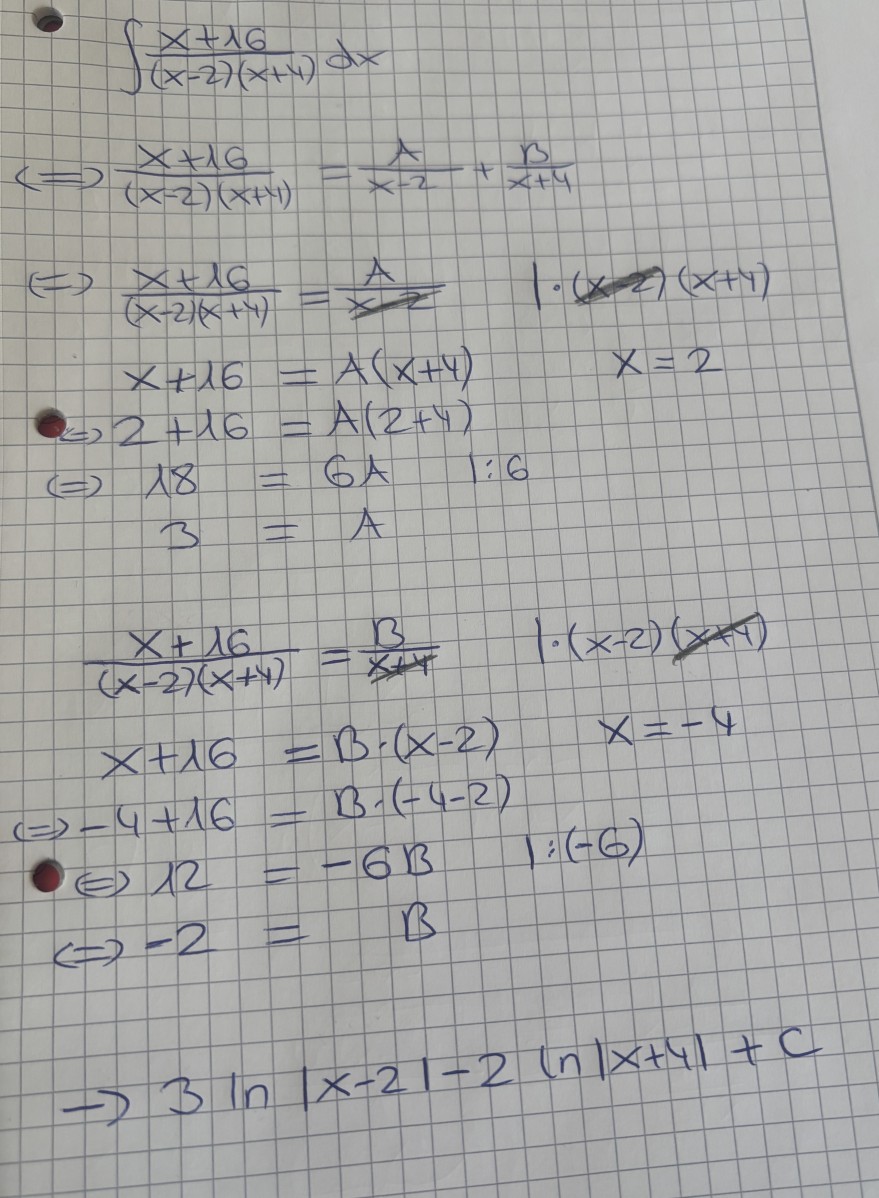 ∫ (x+16)/((x-2)(x+4)) dx
<=> (x+16)/((x-2)(x+4)) = A/(x-2) + B/(x+4)
<=> (x+16)/((x-2)(x+4)) = A/(x-2) |·(x-2)(x+4)
x+16 = A(x+4) x=2
<=> 2+16 = A(2+4)
<=> 18 = 6A |:6
3 = A
(x+16)/((x-2)(x+4)) = B/(x+4) |·(x-2)(x+4)
x+16 = B·(x-2) x=-4
<=> -4+16 = B·(-4-2)
<=> 12 = -6B |:(-6)
<=> -2 = B
→ 3 ln |x-2| - 2 ln |x+4| + C